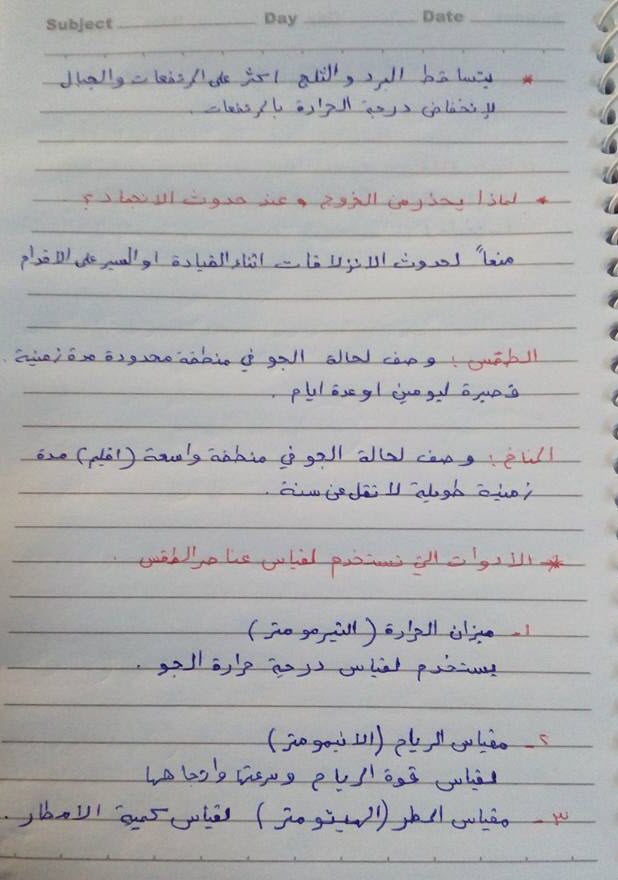 Subject Day Date
* يتساقط البرد والثلج اكثر على المرتفعات والجبال
لإنخفاض درجة الحرارة بالمرتفعات.
* لماذا يحذر من الخروج عند حدوث الانجماد؟
منعاً لحدوث الانزلاقات اثناء القيادة او السير على الاقدام
الطقس: وصف لحالة الجو في منطقة محدودة مدة زمنية
قصيرة ليومين او عدة ايام.
المناخ: وصف لحالة الجو في منطقة واسعة (اقليم) مدة
زمنية طويلة لا تقل عن سنة.
* الأدوات التي تستخدم لقياس عناصر الطقس.
١- ميزان الحرارة (الثيرمومتر)
يستخدم لقياس درجة حرارة الجو.
٢- مقياس الرياح (الانيمومتر)
لقياس قوة الرياح وسرعتها واتجاهها
٣- مقياس المطر (الهيتومتر) لقياس كمية الامطار.